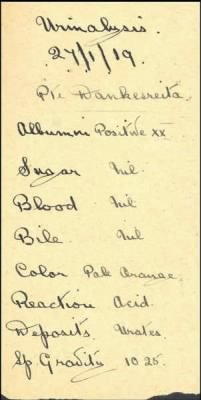 Urinalysis.
27/1/19.
Pte Dankesreita
Albumin Positive xx
Sugar Nil
Blood Nil
Bile Nil
Color Pale Orange
Reaction Acid.
Deposits Urates.
Sp Gravity 1025.